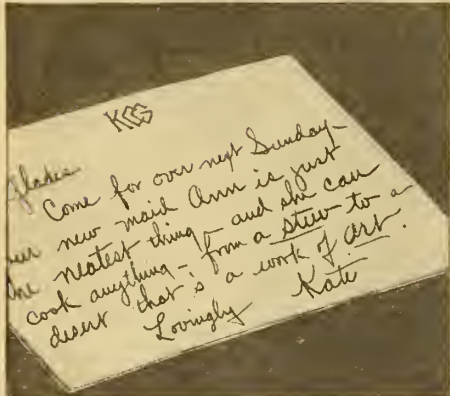 KGS
Gladys
Come for over next Sunday–
our new maid Ann is just
the neatest thing – and she can
cook anything – from a stew to a
desert that's a work of art.
Lovingly
Kate